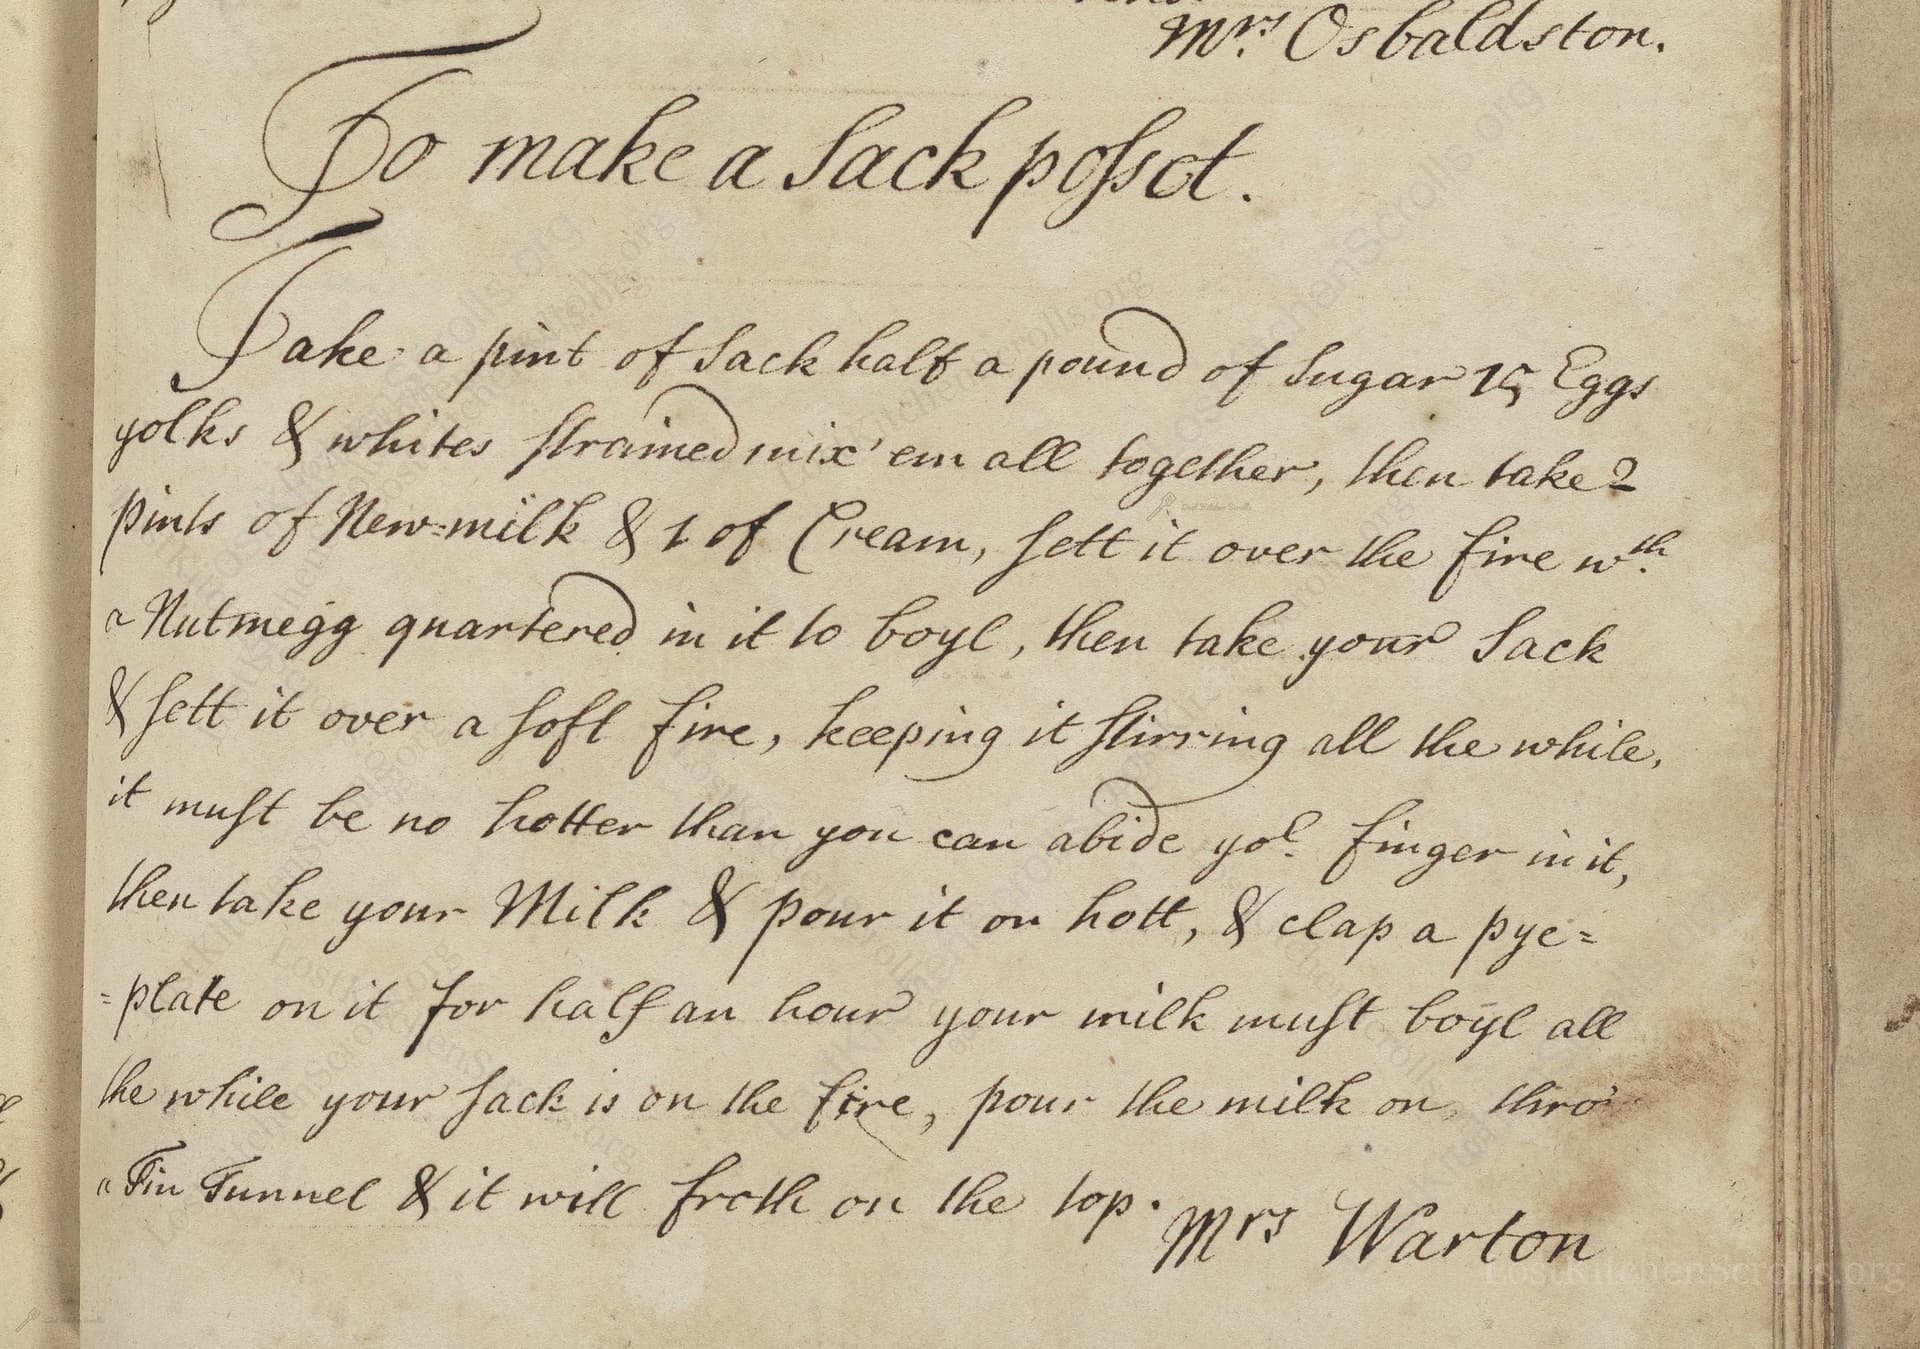 Mrs. Osbaldston.
To make a Sack posset.
Take a pint of Sack half a pound of Sugar 15 Eggs
yolks & whites strained mix 'em all together, then take 2
pints of New=milk & 1 of Cream, sett it over the fire wth.
a Nutmegg quartered in it to boyl, then take your Sack
& sett it over a soft fire, keeping it stirring all the while,
it must be no hotter than you can abide yor. finger in it,
then take your Milk & pour it on hott, & clap a pye=
=plate on it for half an hour your milk must boyl all
the while your sack is on the fire, pour the milk on, thro'
a Tin Tunnel & it will froth on the top.
Mrs Warton
LostKitchenScrolls.org